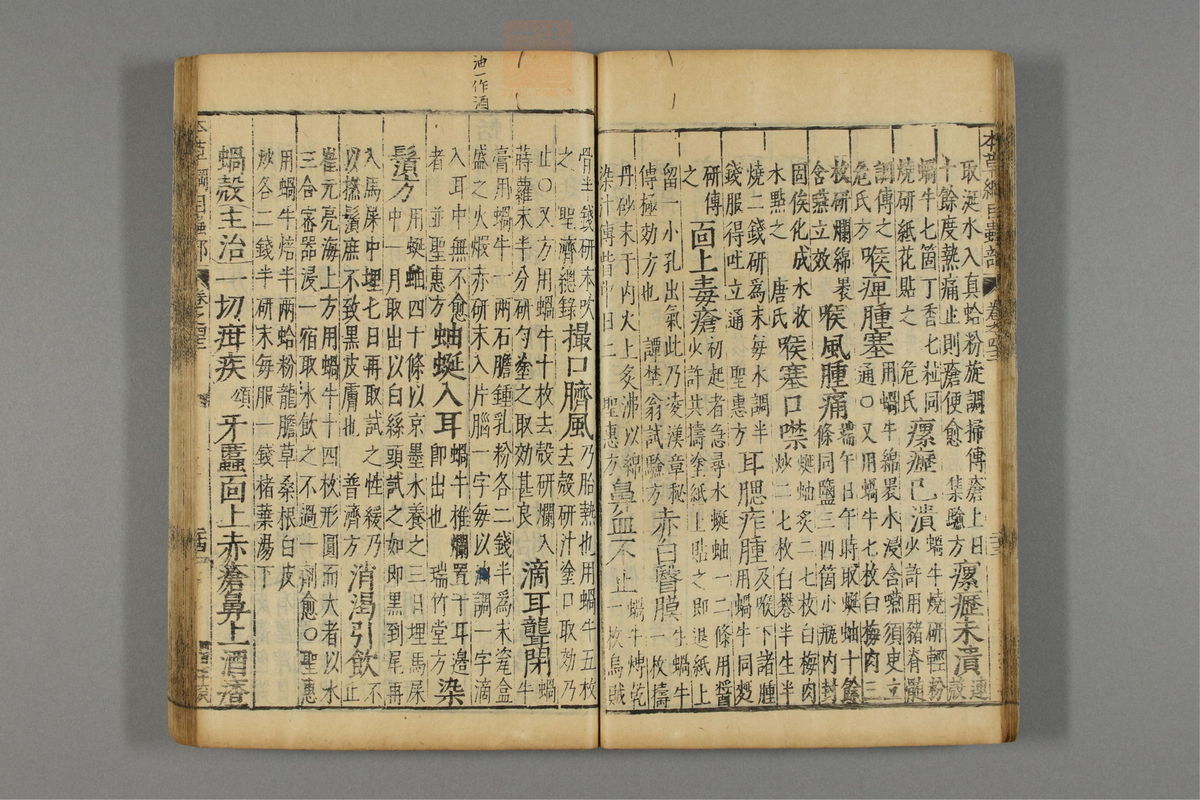 本草綱目蟲部 卷之四十二
取涎水入真蛤粉旋調掃傅瘡上日
十餘度熱痛止則瘡便愈 集驗方
瘰癧未潰
連
殼
蝸牛七箇丁香七粒同
燒研紙花貼之 危氏
瘰癧已潰
蝸牛燒研輕粉
少許用豬脊髓
調傅之
危氏方
喉痺腫塞
用蝸牛綿裹水浸含嚥須臾立
通○又用蝸牛七枚白梅肉三
枚研爛綿裹
含嚥立效
喉風腫痛
端午日午時取蜒蚰十餘
條同鹽三四箇小瓶內封
固俟化成水收
水點之 唐氏
喉塞口噤
蜒蚰炙二七枚白梅肉
炒二七枚白礬半生半
燒二錢研爲末每水調半
錢服得吐立通 聖惠方
耳腮痄腫
及喉下諸腫
用蝸牛同麪
研傅
之
面上毒瘡
初起者急尋水蜒蚰一二條用醬
少許共擣塗紙上貼之即退紙上
留一小孔出氣此乃凌漢章秘
傳極効方也 譚埜翁試驗方
赤白翳膜
生蝸牛
一枚擣
丹砂末于內火上炙沸以綿
染汁傅眥中日二 聖惠方
鼻血不止
蝸牛焙乾
一枚烏賊
油一作酒
骨半錢研末吹
之 聖濟總錄
撮口臍風
乃胎熱也用蝸牛五枚
去殼研汁塗口取効乃
止○又方用蝸牛十枚去殼研爛入
蒔蘿末半分研勻塗之取効甚良
滴耳聾閉
蝸
牛
膏用蝸牛一兩石膽鍾乳粉各二錢半爲末瓷盒
盛之火煅赤研末入片腦一字每以油調一字滴
入耳中無不愈
者 並聖惠方
蚰蜒入耳
蝸牛椎爛置于耳邊
即出也 瑞竹堂方
染
鬚方
用蜒蚰四十條以京墨水養之三日埋馬屎
中一月取出以白絲頭試之如即黑到尾再
入馬屎中埋七日再取試之性緩乃
以撚鬚庶不致黑皮膚也 普濟方
消渴引飲
不
止
崔元亮海上方用蝸牛十四枚形圓而大者以水
三合密器浸一宿取水飲之不過一劑愈○聖惠
用蝸牛焙半兩蛤粉龍膽草桑根白皮
炒各二錢半研末每服一錢楮葉湯下
蝸殼主治一切疳疾頌牙䘌面上赤瘡鼻上酒皶
本草綱目蟲部 卷之四十二